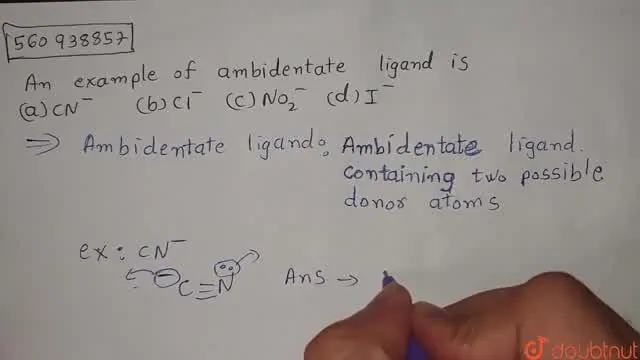 560 938857
An example of ambidentate ligand is
(a) CN⁻ (b) Cl⁻ (c) NO₂⁻ (d) I⁻
⇒ Ambidentate ligand: Ambidentate ligand.
containing two possible
donor atoms
ex: CN⁻
C≡N
Ans →
doubtnut